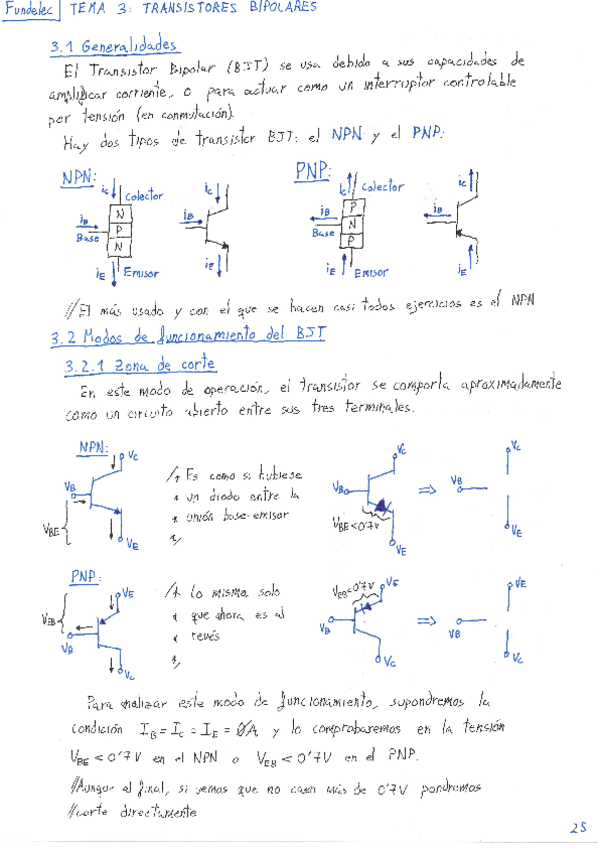 Fundelec TEMA 3: TRANSISTORES BIPOLARES
3.1 Generalidades
El Transistor Bipolar (BJT) se usa debido a sus capacidades de
amplificar corriente, o para actuar como un interruptor controlable
por tensión (en conmutación).
Hay dos tipos de transistor BJT: el NPN y el PNP:
NPN: PNP:
iC Colector iC iC Colector iC
N P
iB P iB iB N iB
Base N Base P
iE Emisor iE iE Emisor iE
//El más usado y con el que se hacen casi todos ejercicios es el NPN
3.2 Modos de funcionamiento del BJT
3.2.1 Zona de corte
En este modo de operación, el transistor se comporta aproximadamente
como un circuito abierto entre sus tres terminales.
NPN: VC VC VC
VB /* Es como si hubiese VB VB
* un diodo entre la
VBE * unión base-emisor VBE<0'7V ⇒
*/
VE VE VE
PNP: VE VEB<0'7V VE VE
/* Lo mismo solo
VEB * que ahora es al ⇒
VB * revés VB VB
*/
VC VC VC
Para analizar este modo de funcionamiento, supondremos la
condición IB = IC = IE = 0A, y lo comprobaremos en la tensión
VBE < 0'7V en el NPN o VEB < 0'7V en el PNP.
//Aunque al final, si vemos que no caen más de 0'7V pondremos
//corte directamente
25